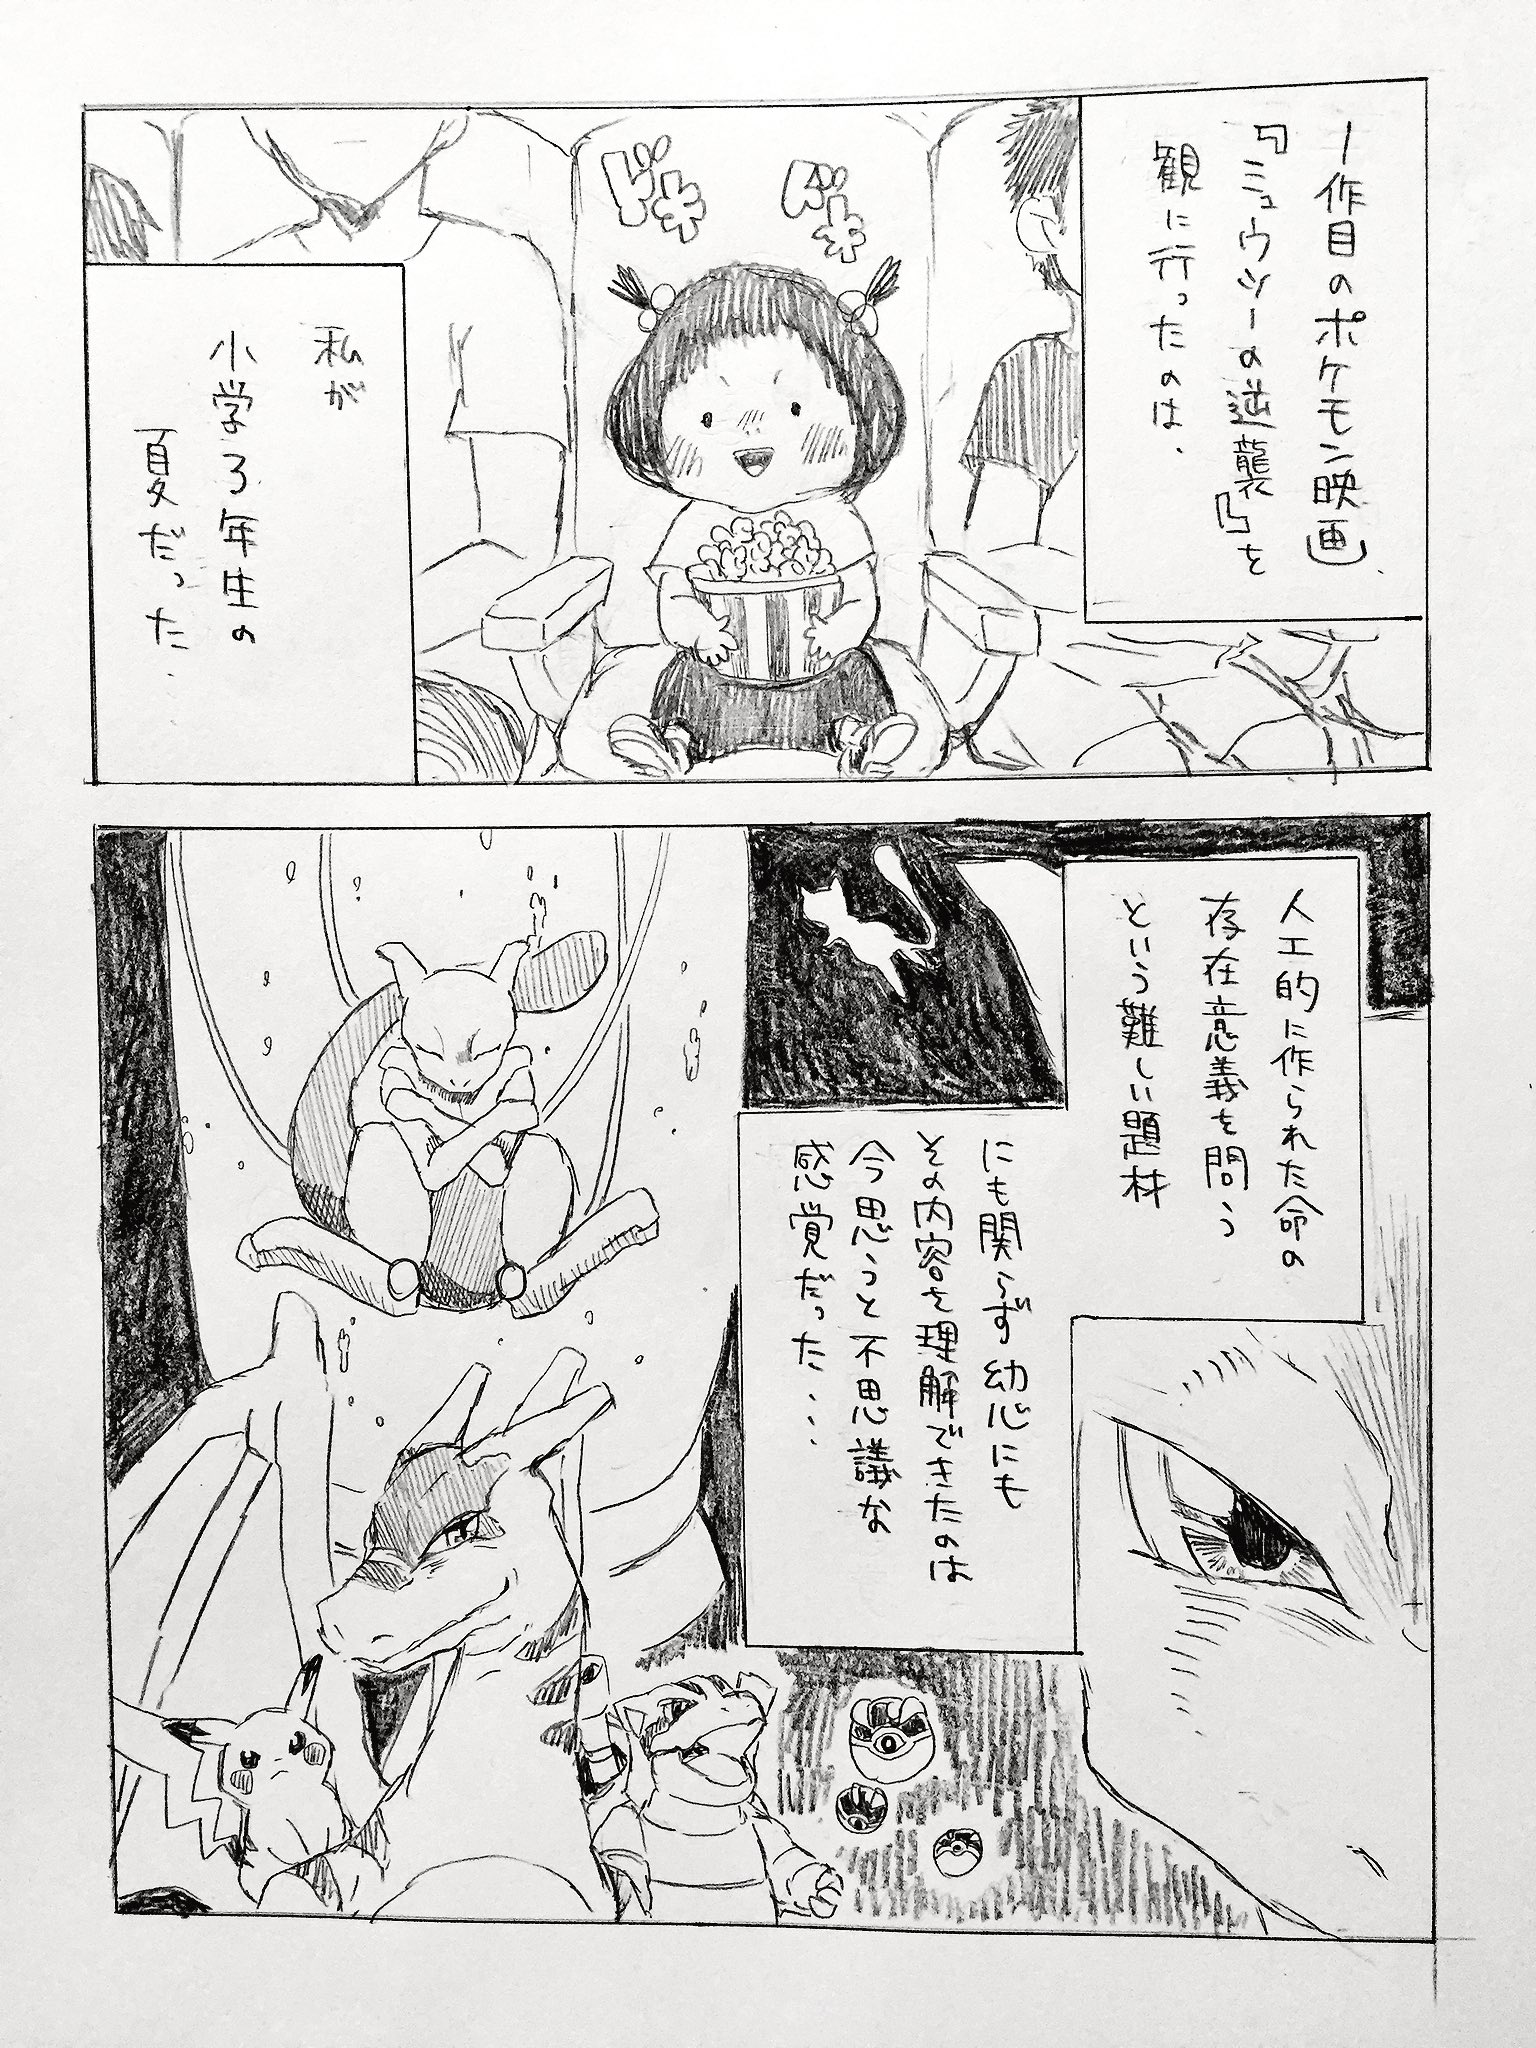 1作目のポケモン映画、
『ミュウツーの逆襲』を
観に行ったのは、
ドキ
ドキ
私が
小学3年生の
夏だった…
人工的に作られた命の
存在意義を問う
という難しい題材
にも関らず幼心にも
その内容を理解できたのは
今思うと不思議な
感覚だった・・・